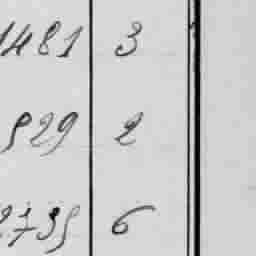 1481 3
929 2
2735 6